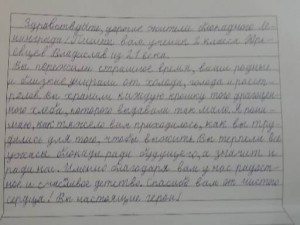 Здравствуйте, дорогие жители блокадного Ле-
нинграда! Пишет вам ученик 2 класса
Владислав из 21 века.
Вы пережили страшное время, ваши родные
и близкие умирали от холода, голода и расст-
релов. Вы хранили каждую крошку того драгоцен-
ного хлеба, которого выдавали так мало. Я пони-
маю, как тяжело вам приходилось, как вы тру-
дились для того, чтобы выжить. Вы терпели все
ужасы блокады ради будущего, а значит и
ради нас. Именно благодаря вам у нас радост-
ное и счастливое детство. Спасибо вам от чистого
сердца! Вы настоящие герои!